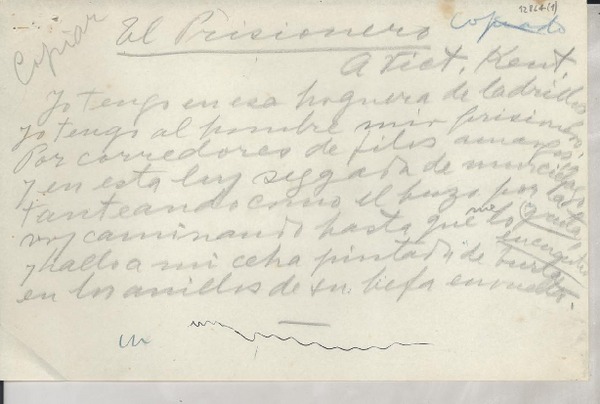 12864(1)
Copiar
El Prisionero
Copiado
A Vict. Kent.
Yo tengo en esa hoguera de ladrillos
yo tengo al hombre mío prisionero.
Por corredores de filos amargos
y en esta luz sesgada de murciélago
tanteando como el buzo por la gruta
voy caminando hasta que me lo encuentre
y hallo a mi cebra pintada de burla
en los anillos de su befa envuelta.